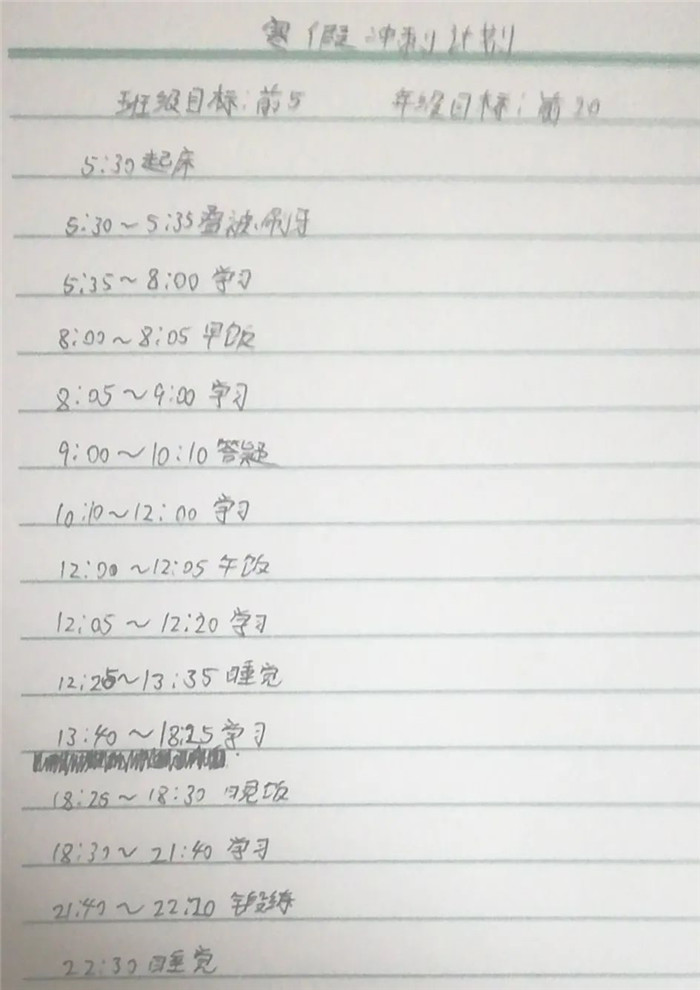 寒假冲刺计划
班级目标:前5 年级目标:前20
5:30起床
5:30~5:35叠被、刷牙
5:35~8:00 学习
8:00~8:05 早饭
8:05~9:00 学习
9:00~10:10 答疑
10:10~12:00 学习
12:00~12:05 午饭
12:05~12:20 学习
12:25~13:35 睡觉
13:40~18:25 学习
18:25~18:30 晚饭
18:30~21:40 学习
21:40~22:20 锻练
22:30 睡觉